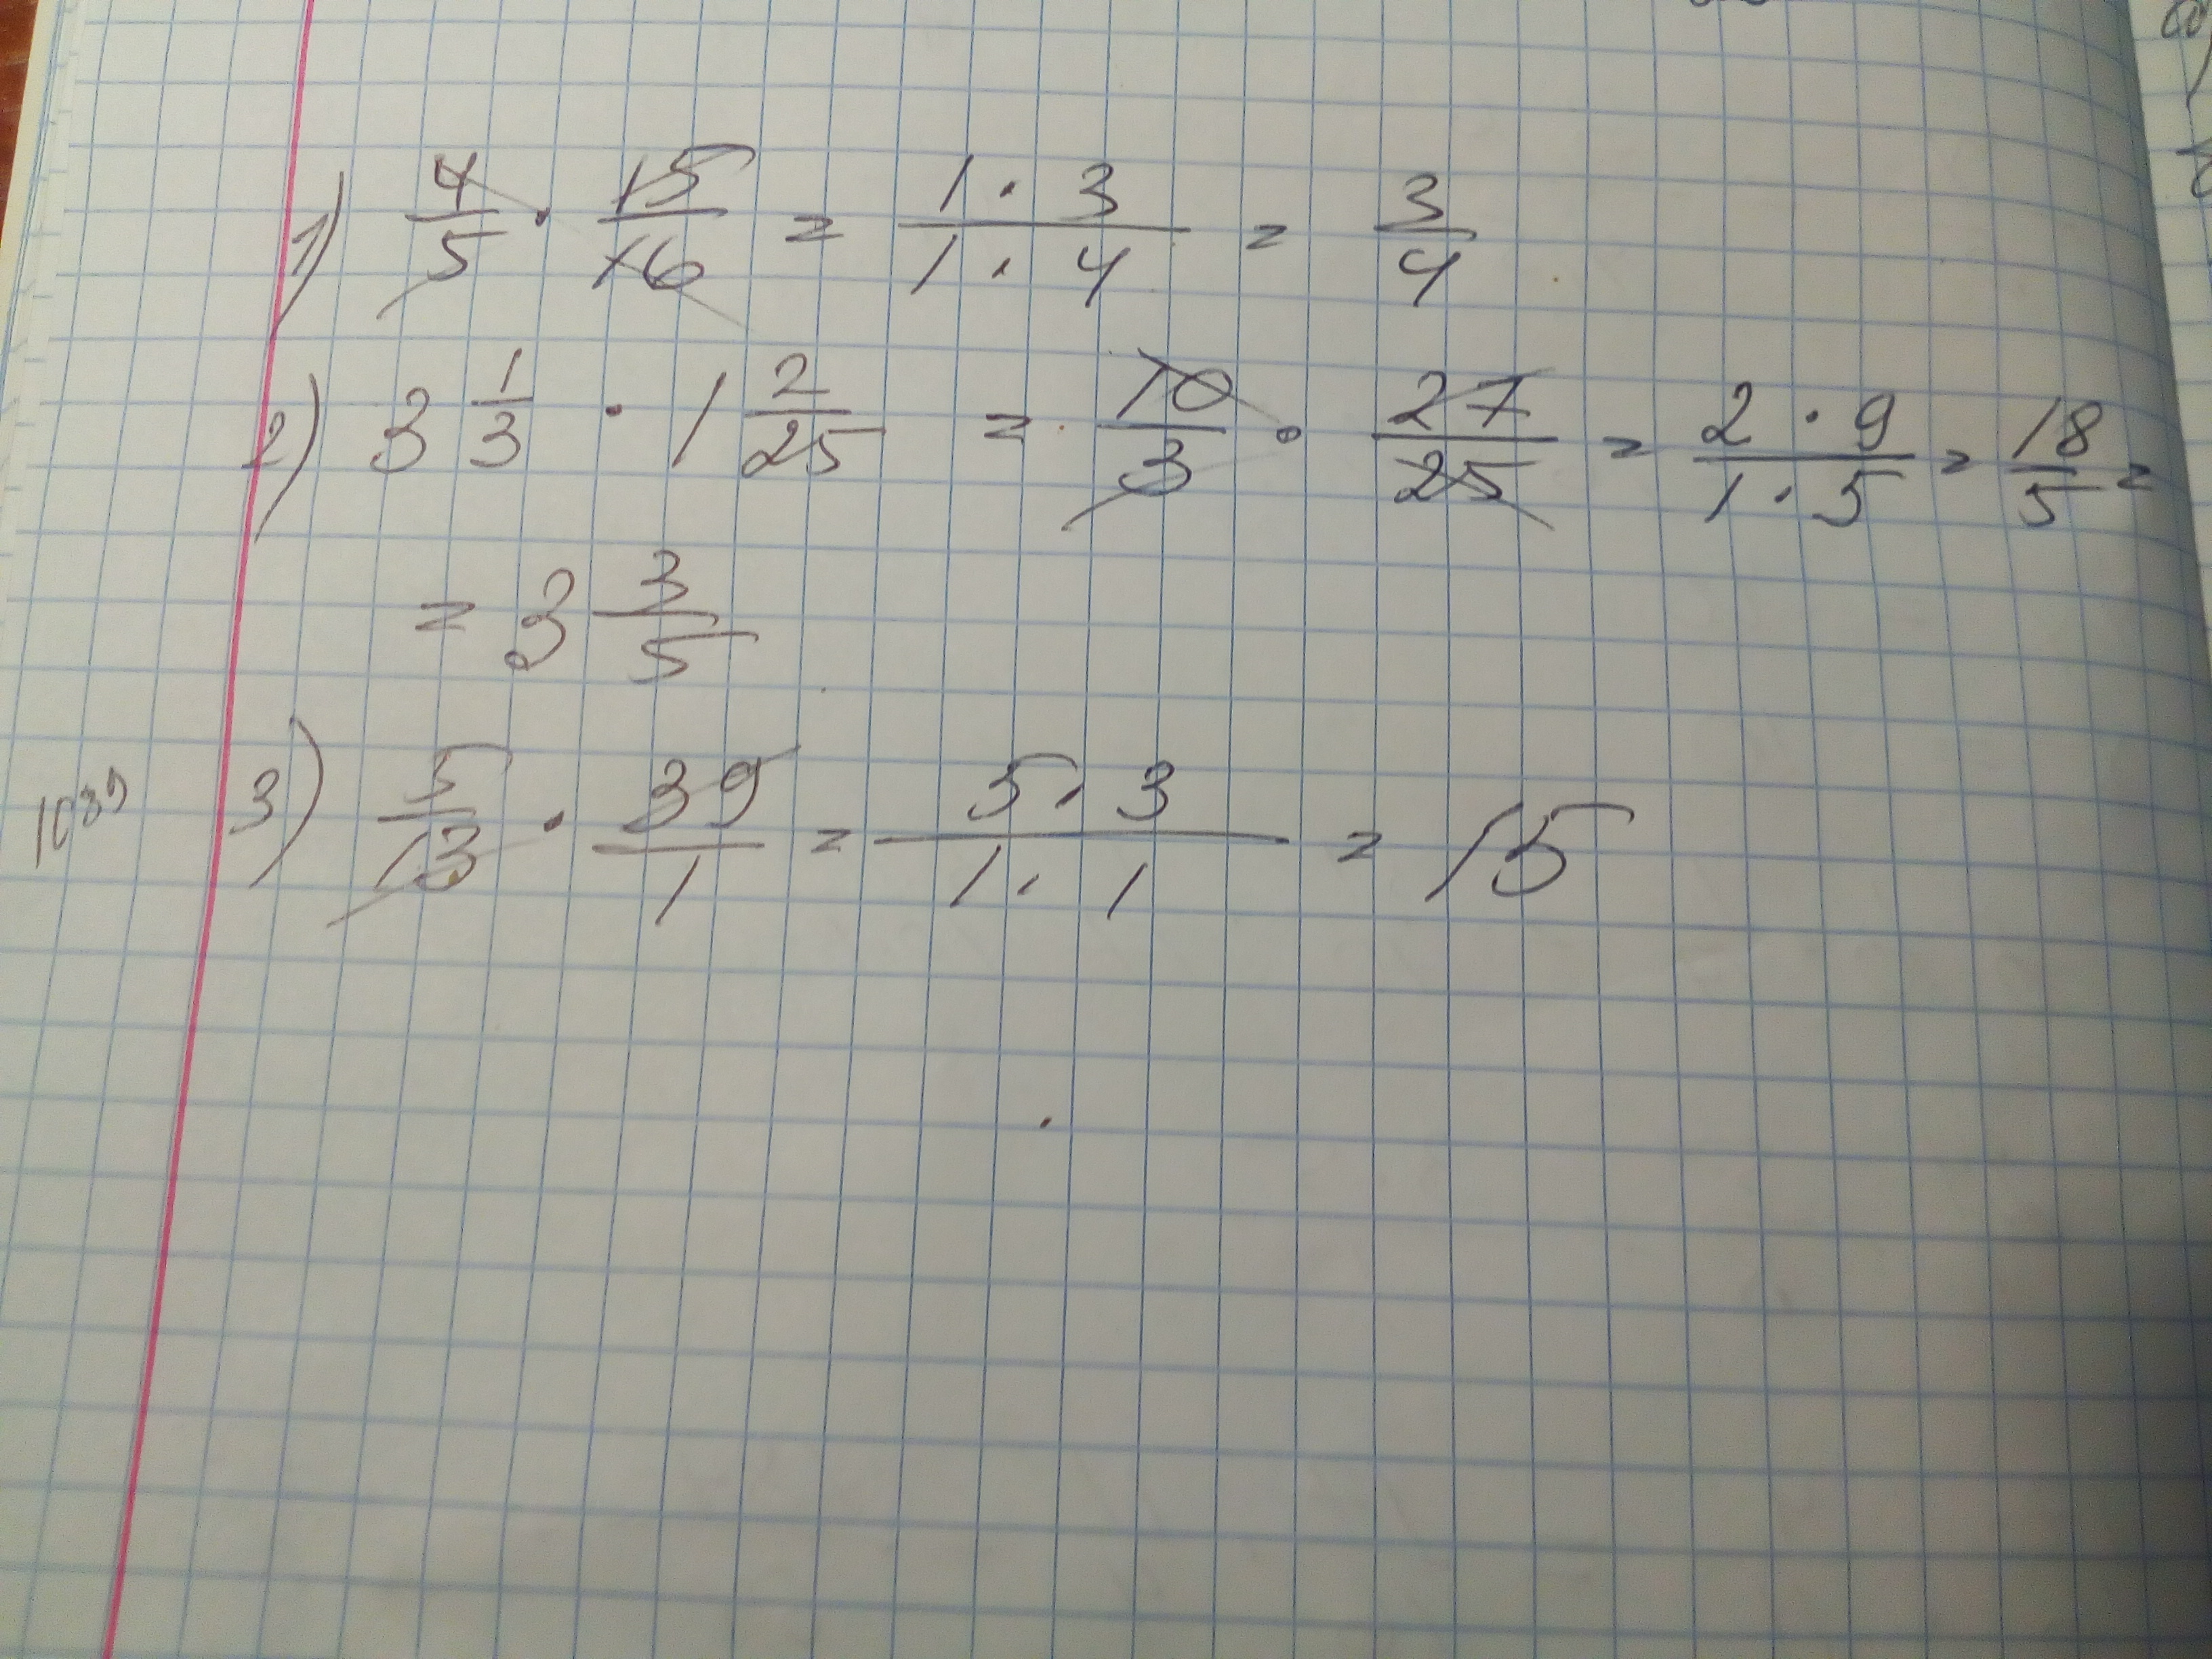 1) 4/5 · 15/16 = 1 · 3/1 · 4 = 3/4
2) 3 1/3 · 1 2/25 = 10/3 · 27/25 = 2 · 9/1 · 5 = 18/5 =
= 3 3/5
3) 5/13 · 39/1 = 5 · 3/1 · 1 = 15